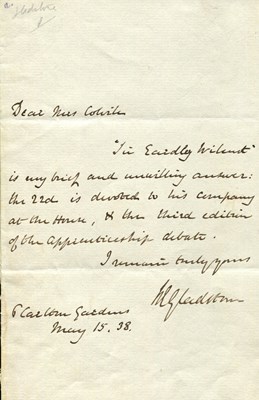 Dear Mrs Colvile
"Sir Eardley Wilmot"
is my brief and unwilling answer:
the 22d is devoted to his company
at the House, & the third edition
of the Apprenticeship debate.
I remain truly yours
WEGladstone
6 Carlton Gardens
May 15. 38.